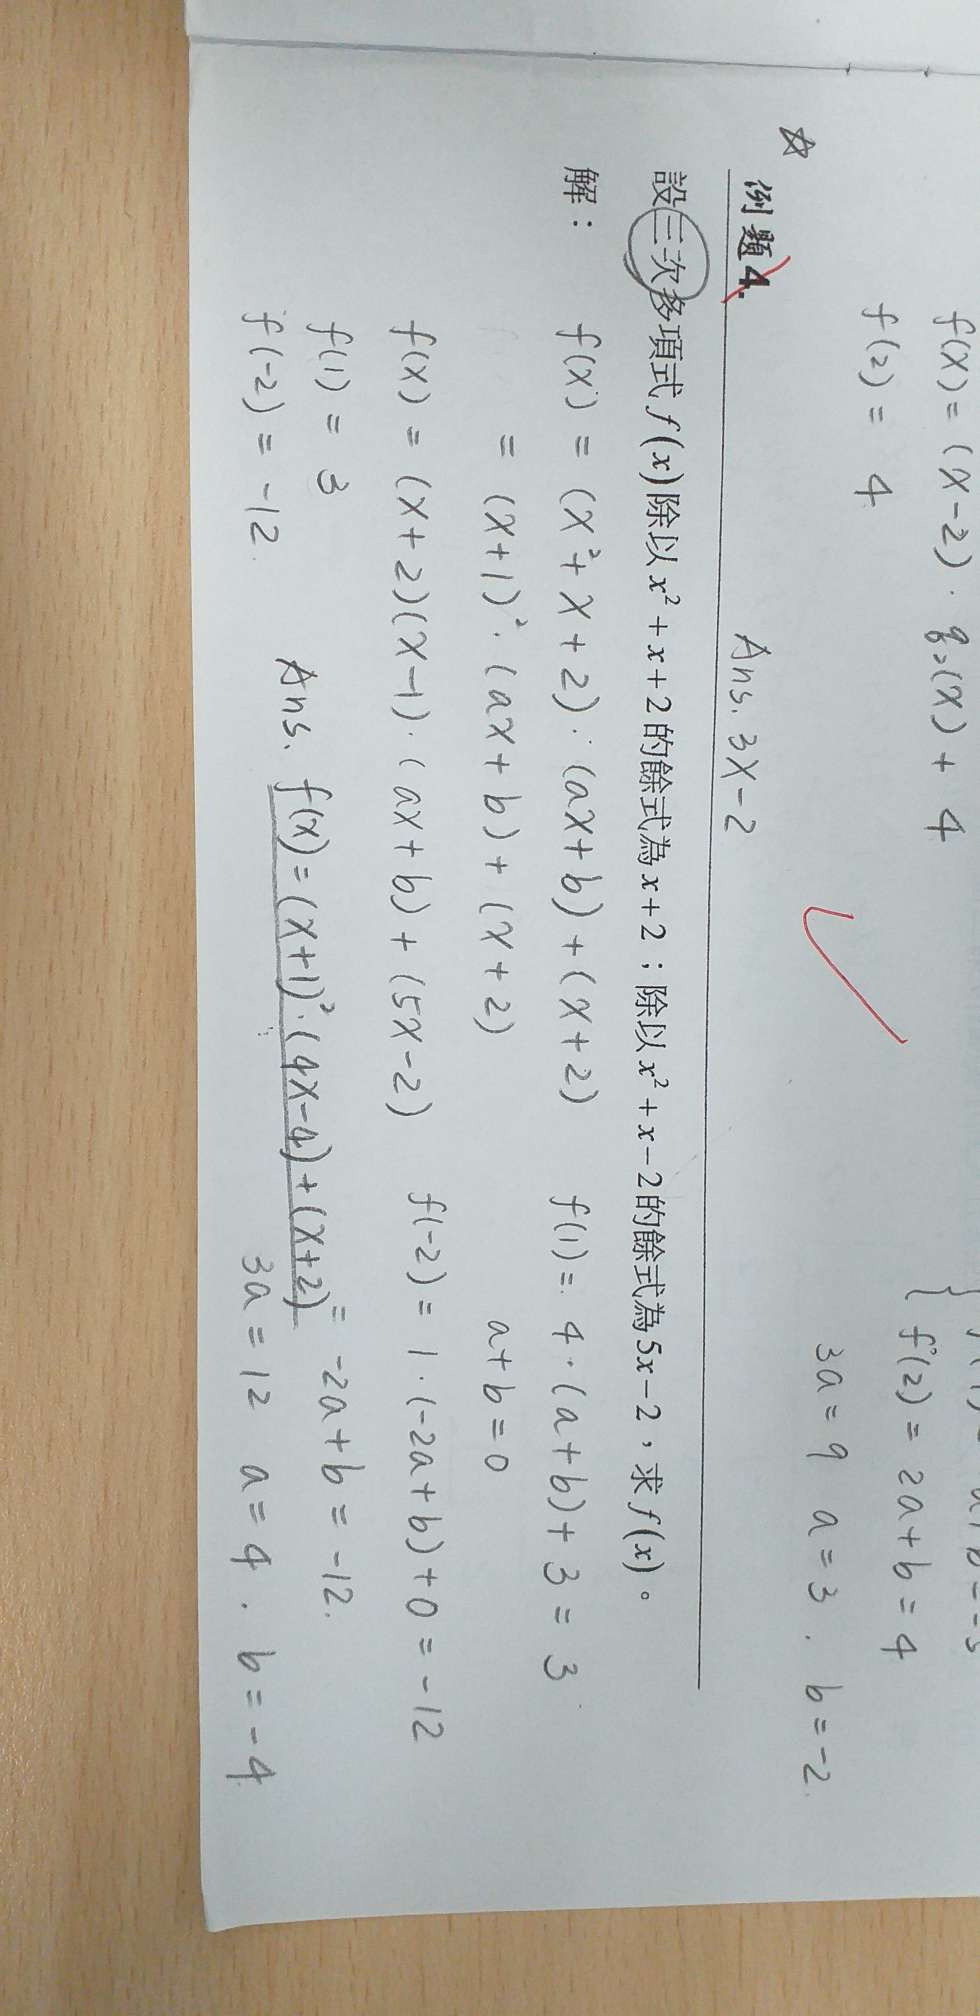 f(x) = (x-2) · q₂(x) + 4
f(2) = 4
{ f(2) = 2a+b = 4
3a = 9 a = 3 . b = -2
Ans. 3x-2
☆ 例題4.
設三次多項式 f(x) 除以 x²+x+2 的餘式為 x+2;除以 x²+x-2 的餘式為 5x-2,求 f(x)。
解:
f(x) = (x²+x+2) · (ax+b) + (x+2)
f(1) = 4 · (a+b) + 3 = 3
= (x+1)² · (ax+b) + (x+2)
a+b = 0
f(x) = (x+2)(x-1) · (ax+b) + (5x-2)
f(-2) = 1 · (-2a+b) + 0 = -12
f(1) = 3
= -2a+b = -12.
f(-2) = -12.
Ans. f(x) = (x+1)² · (4x-4) + (x+2)
3a = 12 a = 4 . b = -4